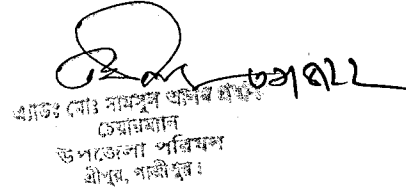 ৩১/৪/২২
এ্যাডঃ মোঃ সামসুল আলম প্রধান
চেয়ারম্যান
উপজেলা পরিষদ
শ্রীপুর, গাজীপুর।